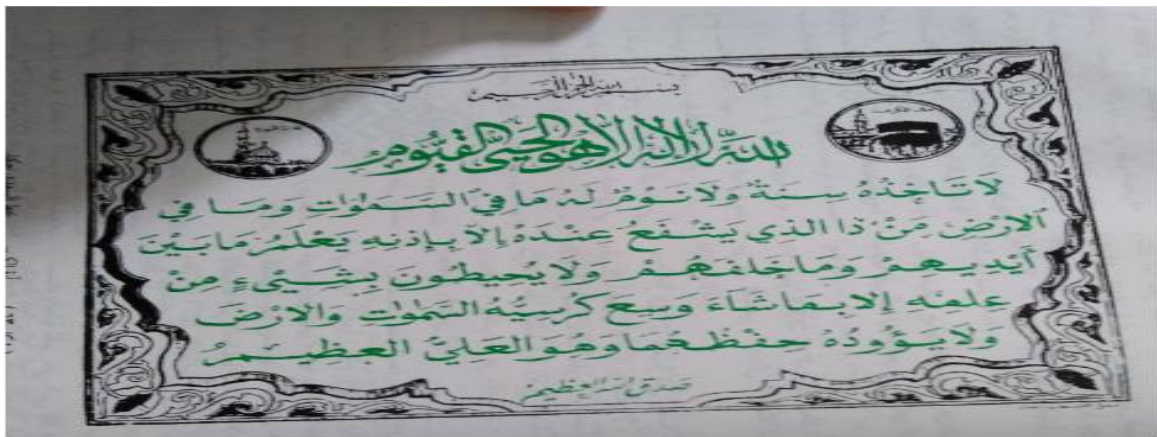 بسم الله الرحمن الرحيم
الله لا اله الا هو الحي القيوم
لا تاخذه سنة ولا نوم له ما في السموات وما في
الارض من ذا الذي يشفع عنده إلا بإذنه يعلم ما بين
أيديهم وما خلفهم ولا يحيطون بشيء من
علمه إلا بما شاء وسع كرسيه السموات والارض
ولا يؤوده حفظهما وهو العلي العظيم
صدق الله العظيم